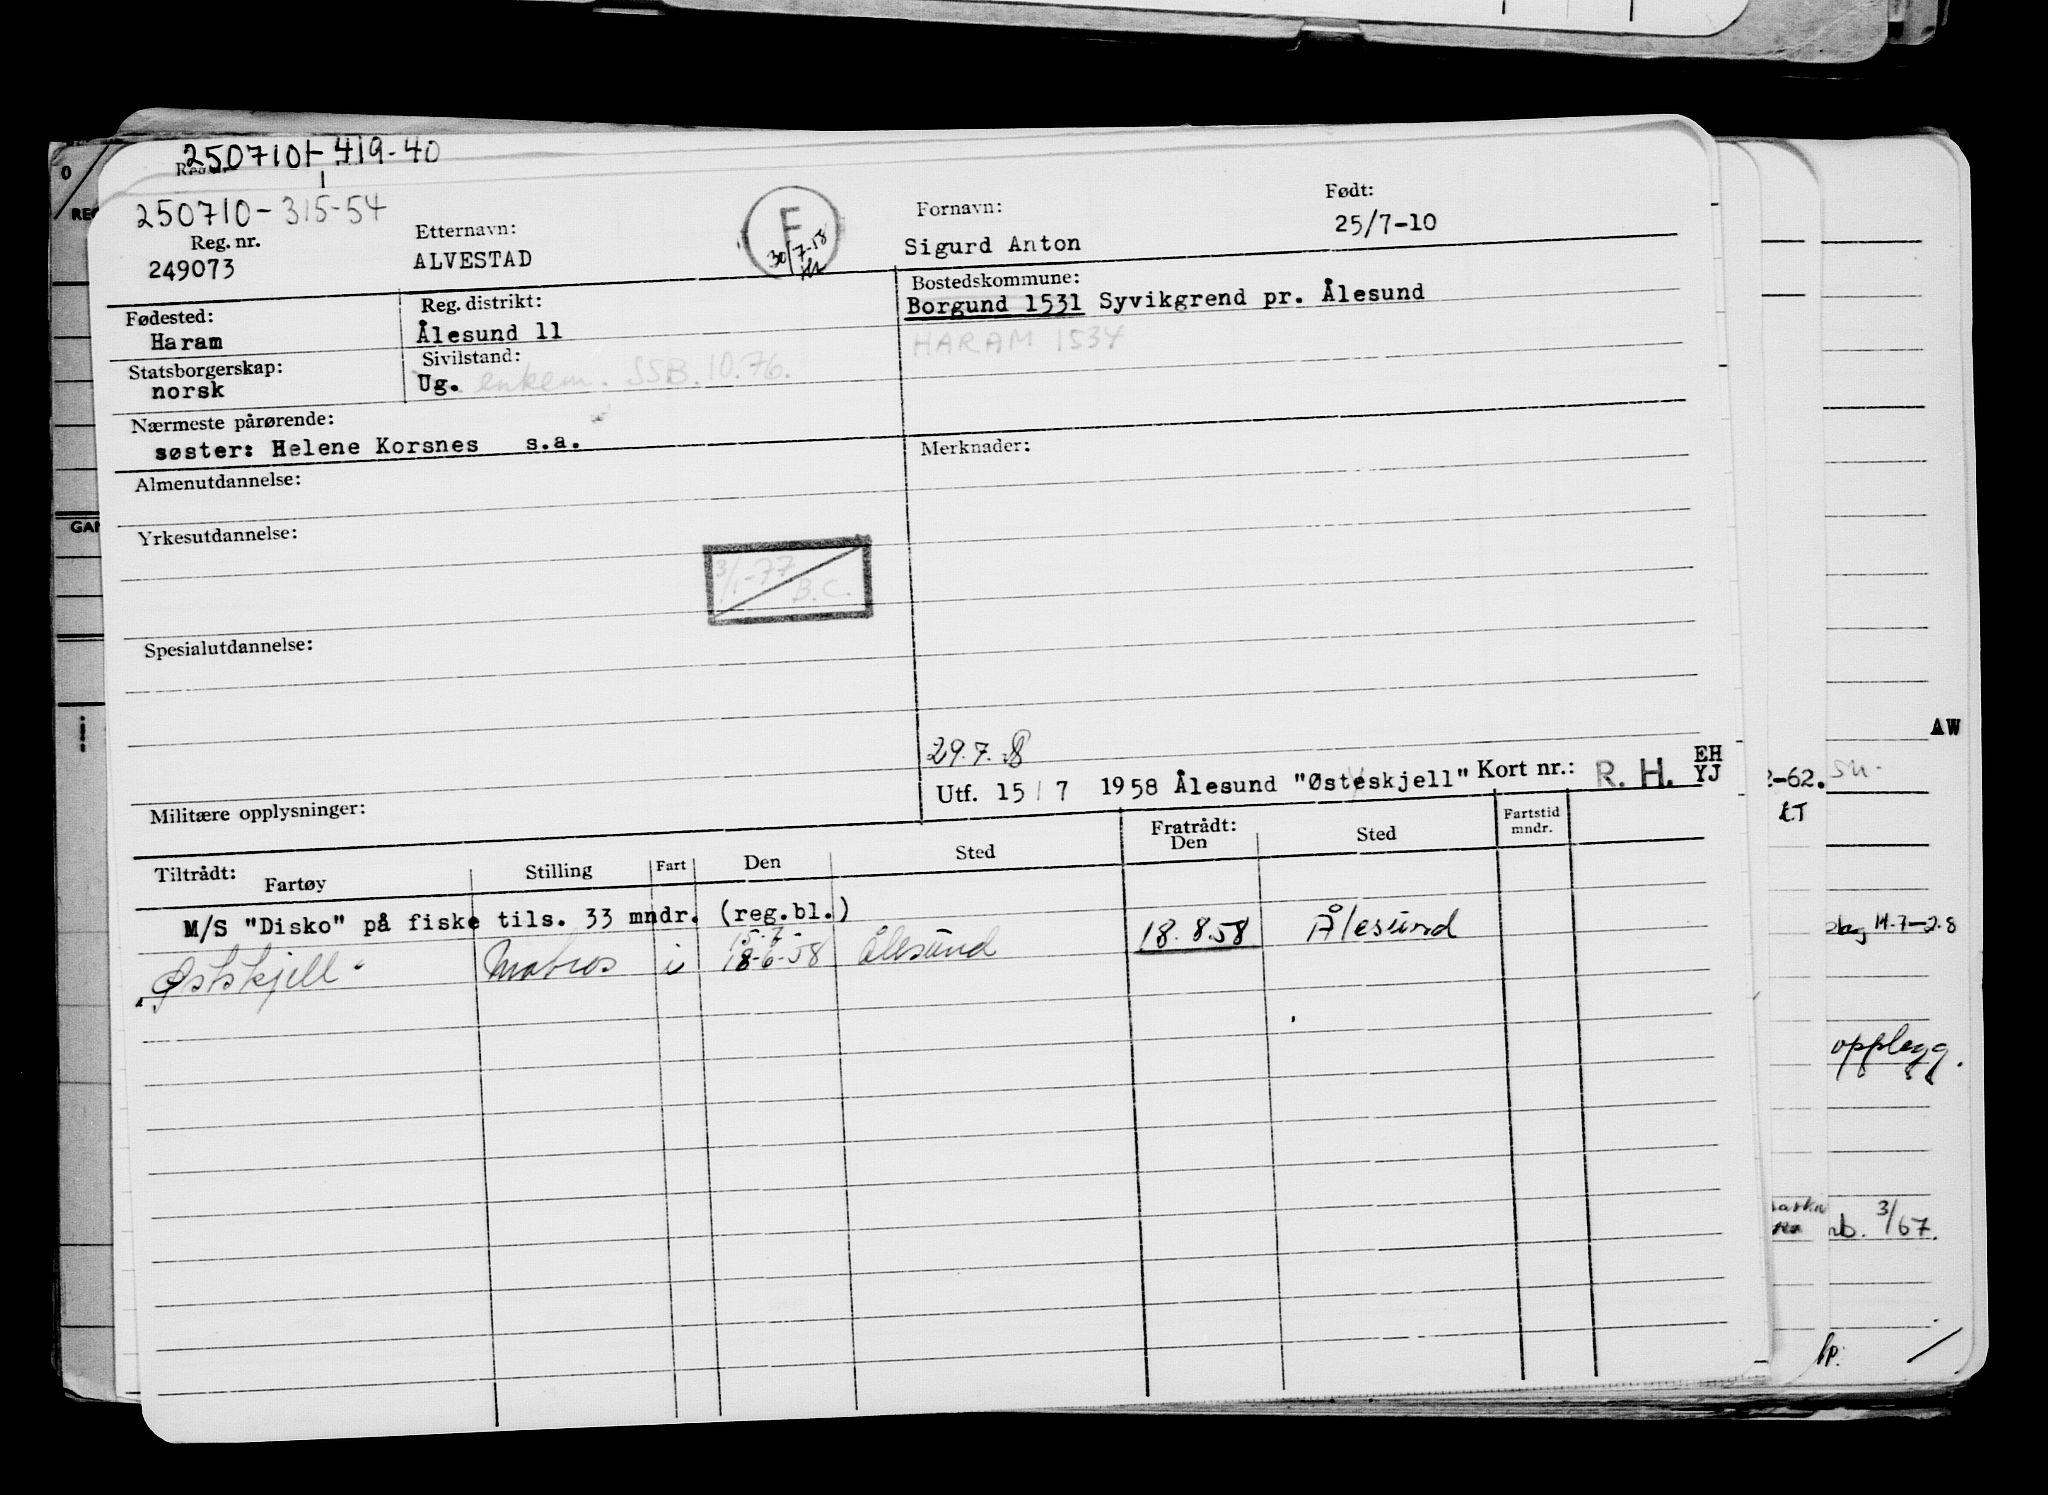 250710 - 419-40
Reg. nr.
250710 - 315-54
Reg. nr.
249073
Etternavn:
ALVESTAD
F
30/7-58
Fornavn:
Sigurd Anton
Født:
25/7-10
Fødested:
Haram
Reg. distrikt:
Ålesund 11
Bostedskommune:
Borgund 1531 Syvikgrend pr. Ålesund
HARAM 1534
Statsborgerskap:
norsk
Sivilstand:
Ug. enkem. SSB. 10.76.
Nærmeste pårørende:
søster: Helene Korsnes s.a.
Merknader:
Almenutdannelse:
Yrkesutdannelse:
3/1-77
B.C.
Spesialutdannelse:
29.7.58
Utf. 15/7 1958 Ålesund "Østeskjell" Kort nr.: R. H. EH
YJ
Militære opplysninger:
Tiltrådt:
Fartøy Stilling Fart Den Sted
Fratrådt:
Den Sted Fartstid
mndr.
M/S "Disko" på fiske tils. 33 mndr. (reg.bl.)
15-7-
Østskjell Matros i 18-6-58 Ålesund 18.8.58 Ålesund
0
REG
GAN
AW
2-62.
LT
14.7-2.8
opplegg.
nb. 3/67.